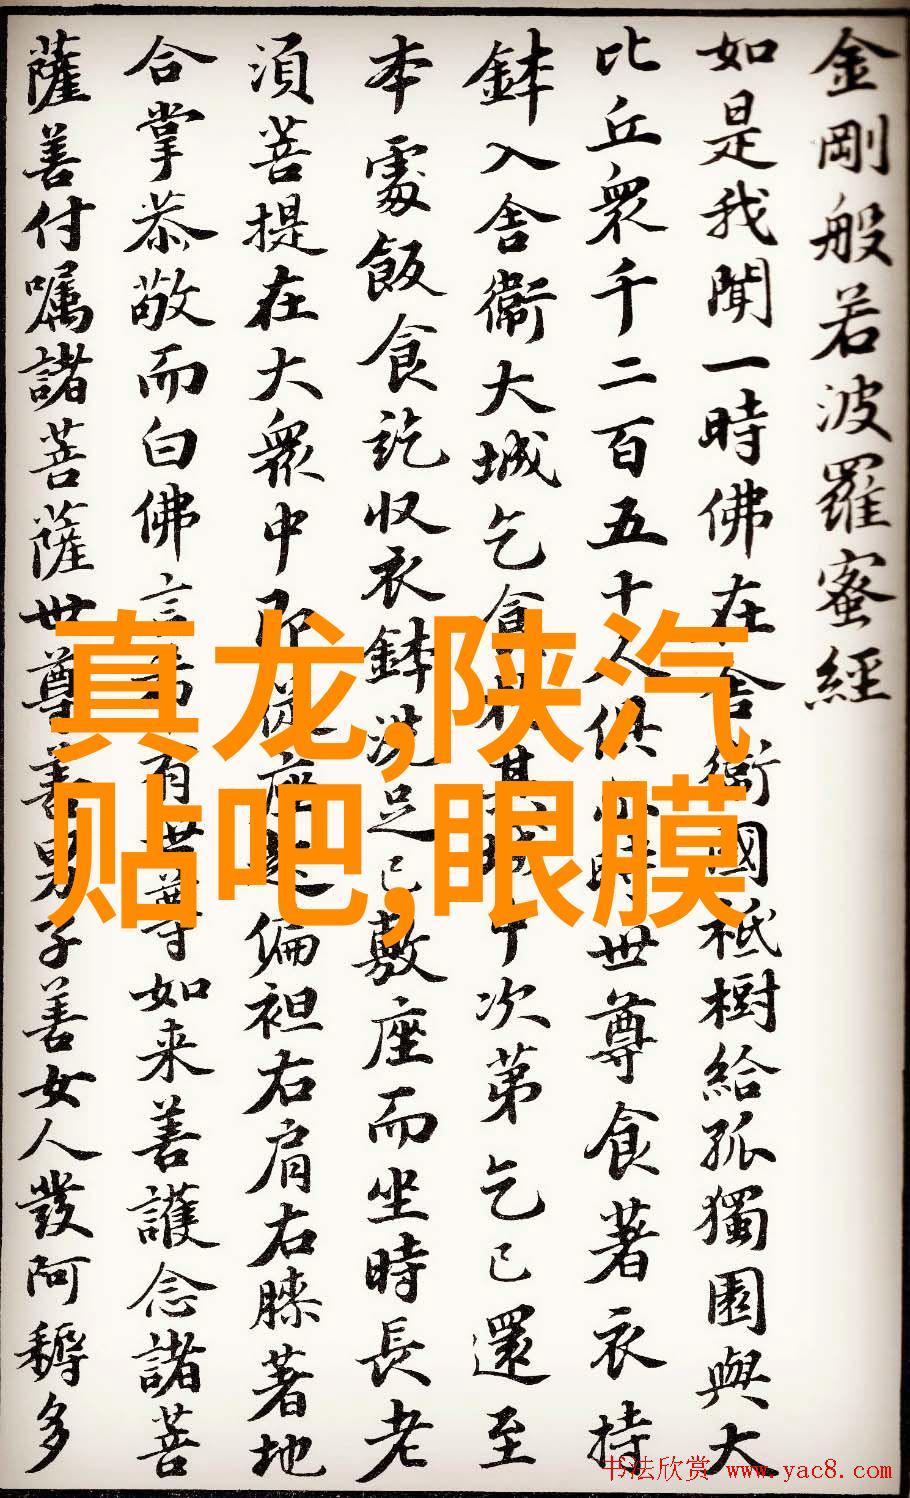 金剛般若波羅蜜經
如是我聞一時佛在舍衛國祇樹給孤獨園與大
比丘衆千二百五十人俱尒時世尊食著衣持
鉢入舍衛大城乞食於其城中次第乞已還至
本處飯食訖収衣鉢洗足已敷座而坐時長老
須菩提在大衆中即從座起偏袒右肩右膝著地
合掌恭敬而白佛言希有世尊如来善護念諸菩
薩善付嘱諸菩薩世尊善男子善女人發阿耨多
真龙,陕汽
贴吧,眼膜
书法欣赏 www.yac8.com